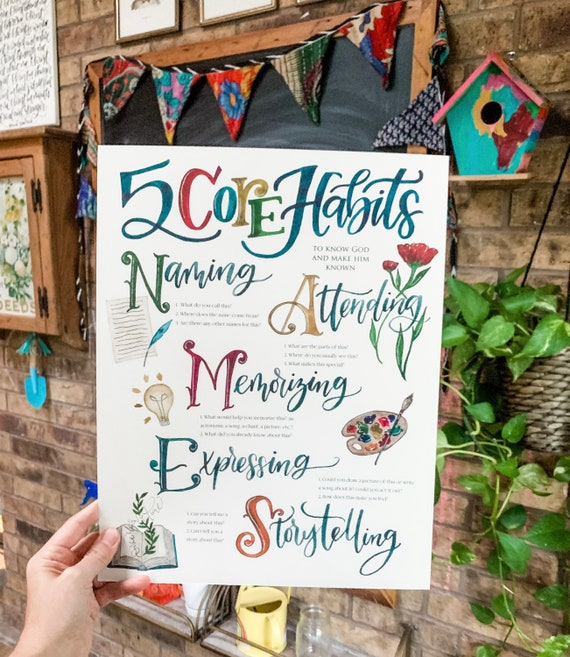 5 Core Habits
TO KNOW GOD
AND MAKE HIM
KNOWN
Naming
1. What do you call this?
2. Where does the name come from?
3. Are there any other names for this?
Attending
1. What are the parts of this?
2. Where do you usually see this?
3. What makes this special?
Memorizing
1. What would help you memorize this? (ie.
acronyms, a song, a chart, a picture, etc.)
2. What did you already know about this?
Expressing
1. Could you draw a picture of this or write
a song about it? Could you act it out?
2. How does this make you feel?
Storytelling
1. Can you tell me a
story about this?
2. Can I tell you a
story about this?
SEEDS